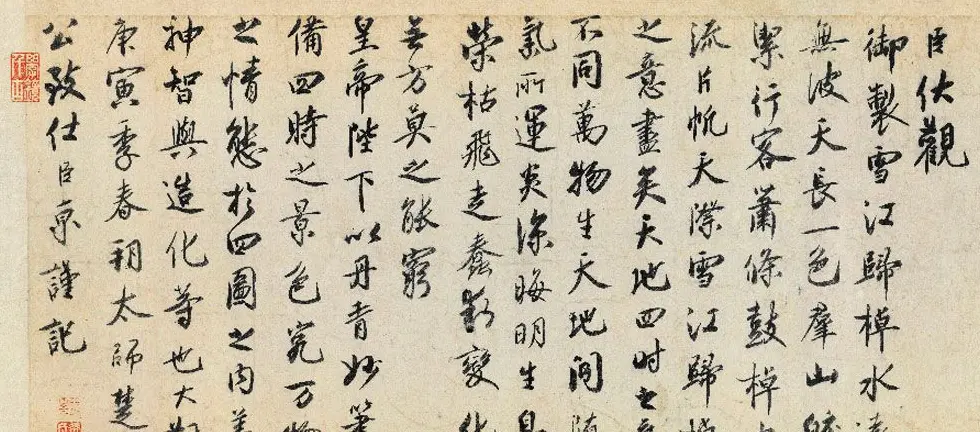 臣伏觀
御製雪江歸棹水遠
無波天長一色羣山皎
潔行客蕭條鼓棹
流片帆天際雪江歸棹
之意盡矣天地四时之
不同萬物生天地間隨
氣所運炎涼晦明生息
榮枯飛走蠢動變化
無方莫之能窮
皇帝陛下以丹青妙筆
備四時之景色究万物
之情態於四圖之内蓋
神智與造化等也大觀
庚寅季春朔太師楚
公致仕臣京謹記